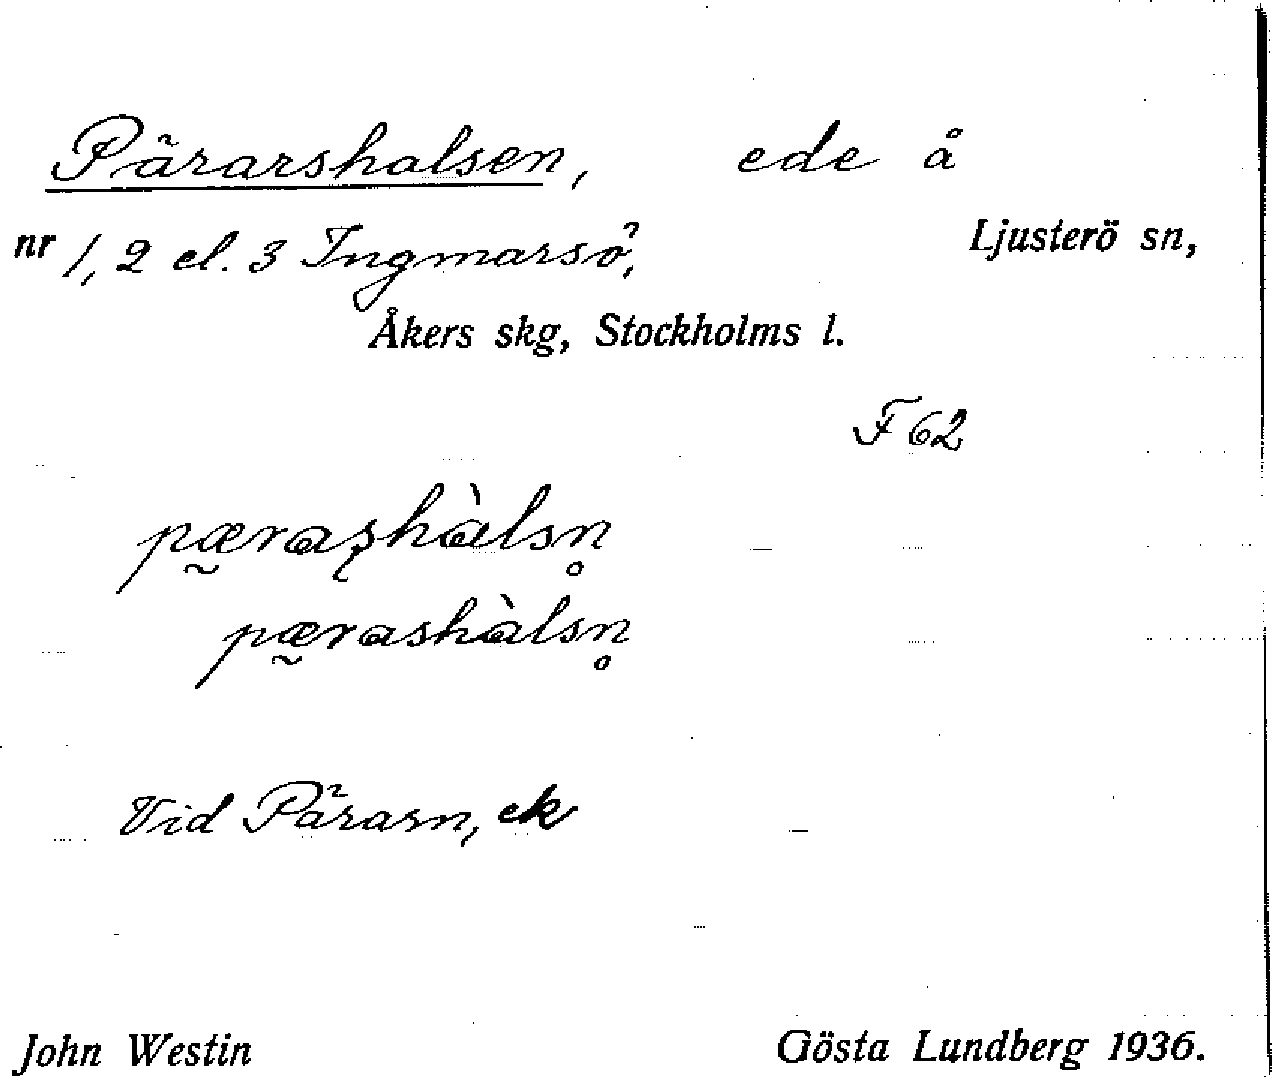 Pärarshalsen, ede å
nr 1, 2 el. 3 Ingmarsö, Ljusterö sn,
Åkers skg, Stockholms l.
F 62
pæ̰raʂhàlsn̥
pæ̰rashàlsn̥
Vid Pärarn, ek
John Westin Gösta Lundberg 1936.